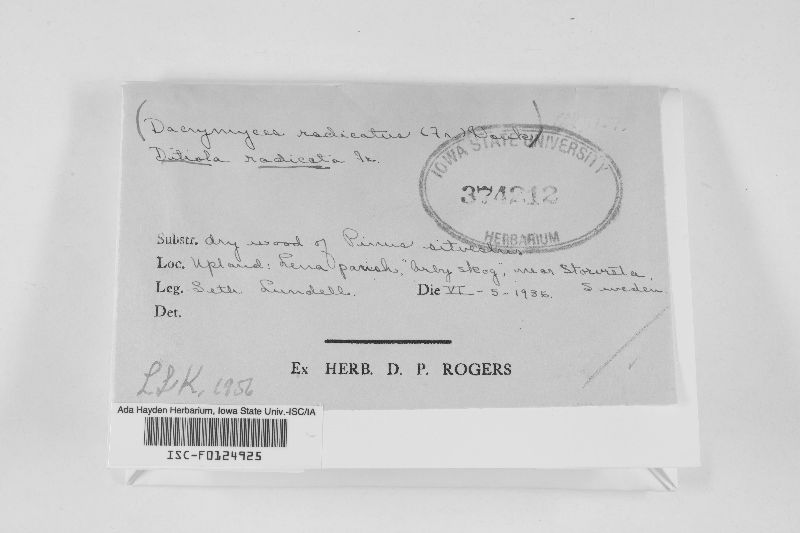 (Dacrymyces radicatus (Fr.) Donk)
Ditiola radicata Fr.
IOWA STATE UNIVERSITY
374212
HERBARIUM
Substr. dry wood of Pinus silvestris
Loc. Upland: Lena parish, "Årby skog", near Storvreta,
Leg. Seth Lundell. Die VI-5-1936. Sweden.
Det.
Ex HERB. D. P. ROGERS
LLK, 1956
Ada Hayden Herbarium, Iowa State Univ.-ISC/IA
ISC-F0124925